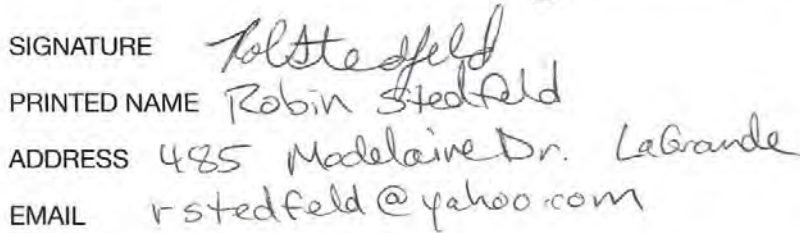 SIGNATURE
PRINTED NAME Robin Stedfeld
ADDRESS 485 Modelaine Dr. LaGrande
EMAIL rstedfeld@yahoo.com